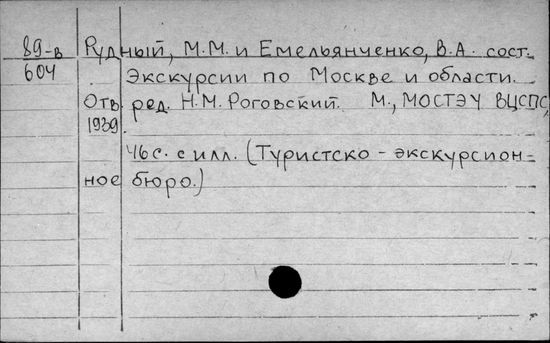 89-в Рудный, М.М. и Емельянченко, В.А. сост.
604 Экскурсии по Москве и области.
Отв. ред. Н.М. Роговский. М., МОСТЭУ ВЦСПС,
1939.
46 с. с илл. (Туристско-экскурсион-
ное бюро.)